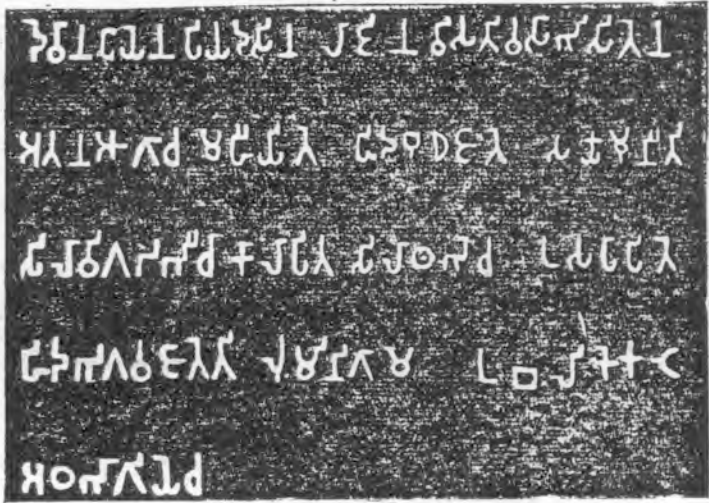 𑀤𑁂𑀯𑀸𑀦𑀧𑀺𑀬𑁂𑀦 𑀧𑀺𑀬𑀤𑀲𑀺𑀦 𑀮𑀸𑀚𑀺𑀦 𑀯𑀻𑀲𑀢𑀺𑀯𑀲𑀸𑀪𑀺𑀲𑀺𑀢𑁂𑀦
𑀅𑀢𑀦 𑀆𑀕𑀸𑀘 𑀫𑀳𑀻𑀬𑀺𑀢𑁂 𑀳𑀺𑀤 𑀩𑀼𑀥𑁂 𑀚𑀸𑀢𑁂 𑀲𑀓𑁆𑀬𑀫𑀼𑀦𑀺𑀢𑀺
𑀲𑀺𑀮𑀸 𑀯𑀺𑀕𑀟𑀪𑀻𑀘𑀸 𑀓𑀸𑀮𑀸𑀧𑀺𑀢 𑀲𑀺𑀮𑀸𑀣𑀪𑁂𑀘 𑀉𑀲𑀧𑀸𑀧𑀺𑀢𑁂
𑀳𑀺𑀤 𑀪𑀕𑀯𑀁 𑀚𑀸𑀢𑁂𑀢𑀺 𑀮𑀼𑀁𑀫𑀺𑀦𑀺 𑀕𑀸𑀫𑁂 𑀉𑀩𑀮𑀺𑀓𑁂 𑀓𑀝𑁂
𑀅𑀞𑀪𑀸𑀕𑀺𑀬𑁂𑀘